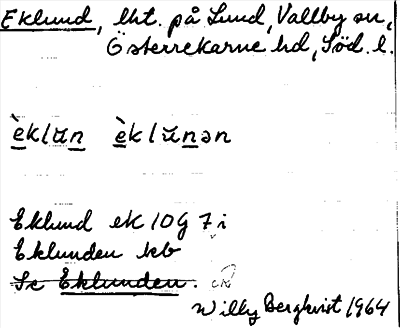 Eklund, lht. på Lund, Vallby sn,
Österrekarne hd, Söd. l.
èklun èklunən
Eklund ek 10G 7 i
Eklunden kb
Se Eklunden.
Willy Bergkvist 1964